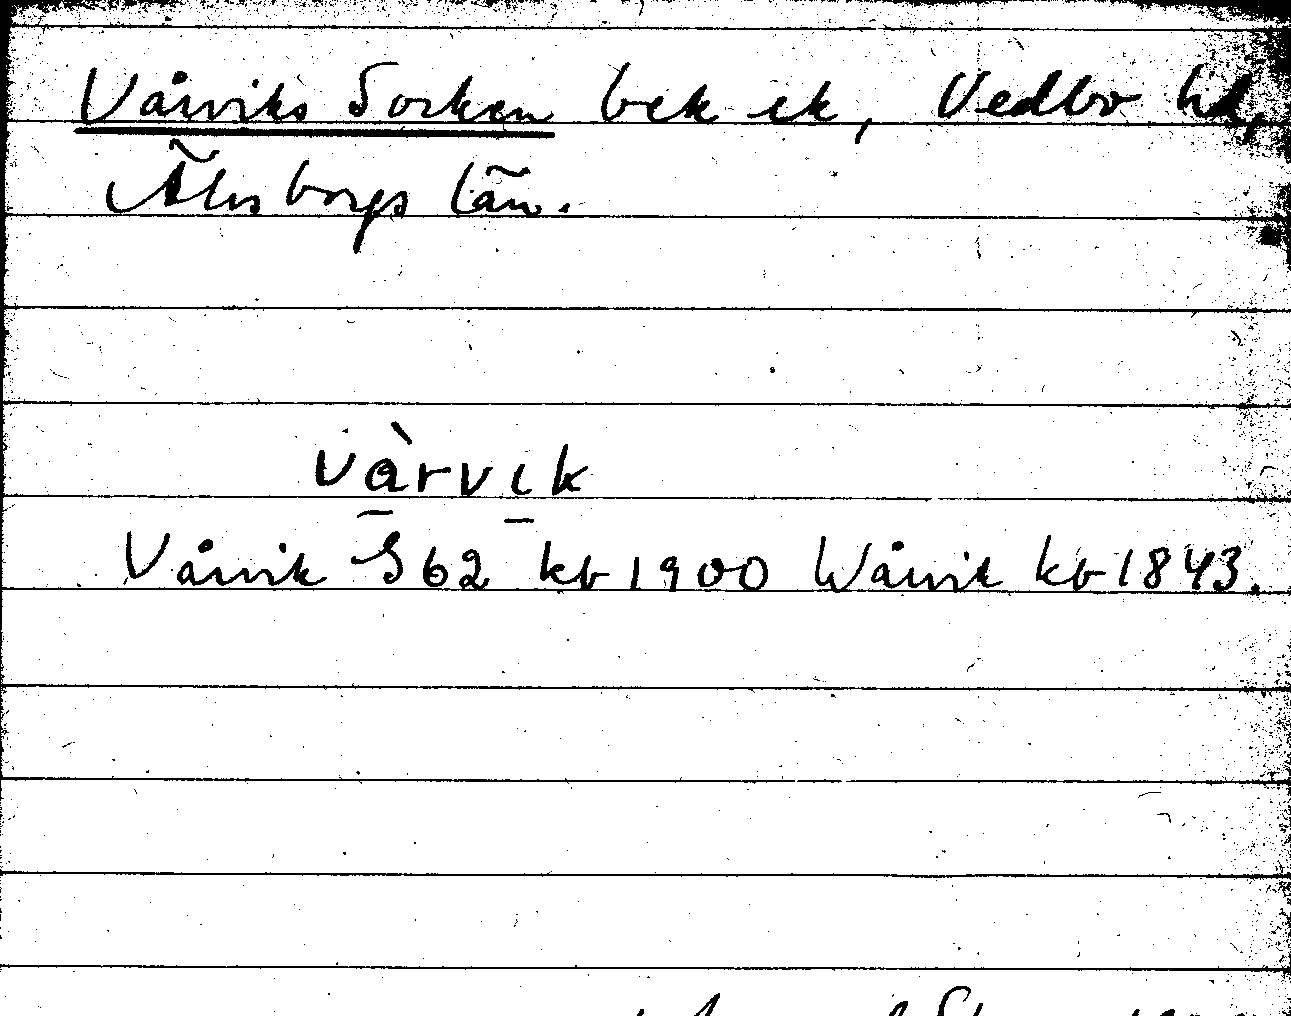 Vårviks Socken bek ek, Vedbo hd,
Älvsborgs län.
vàrvik
Vårvik G62 kb 1900 Wårvik kb 1843.